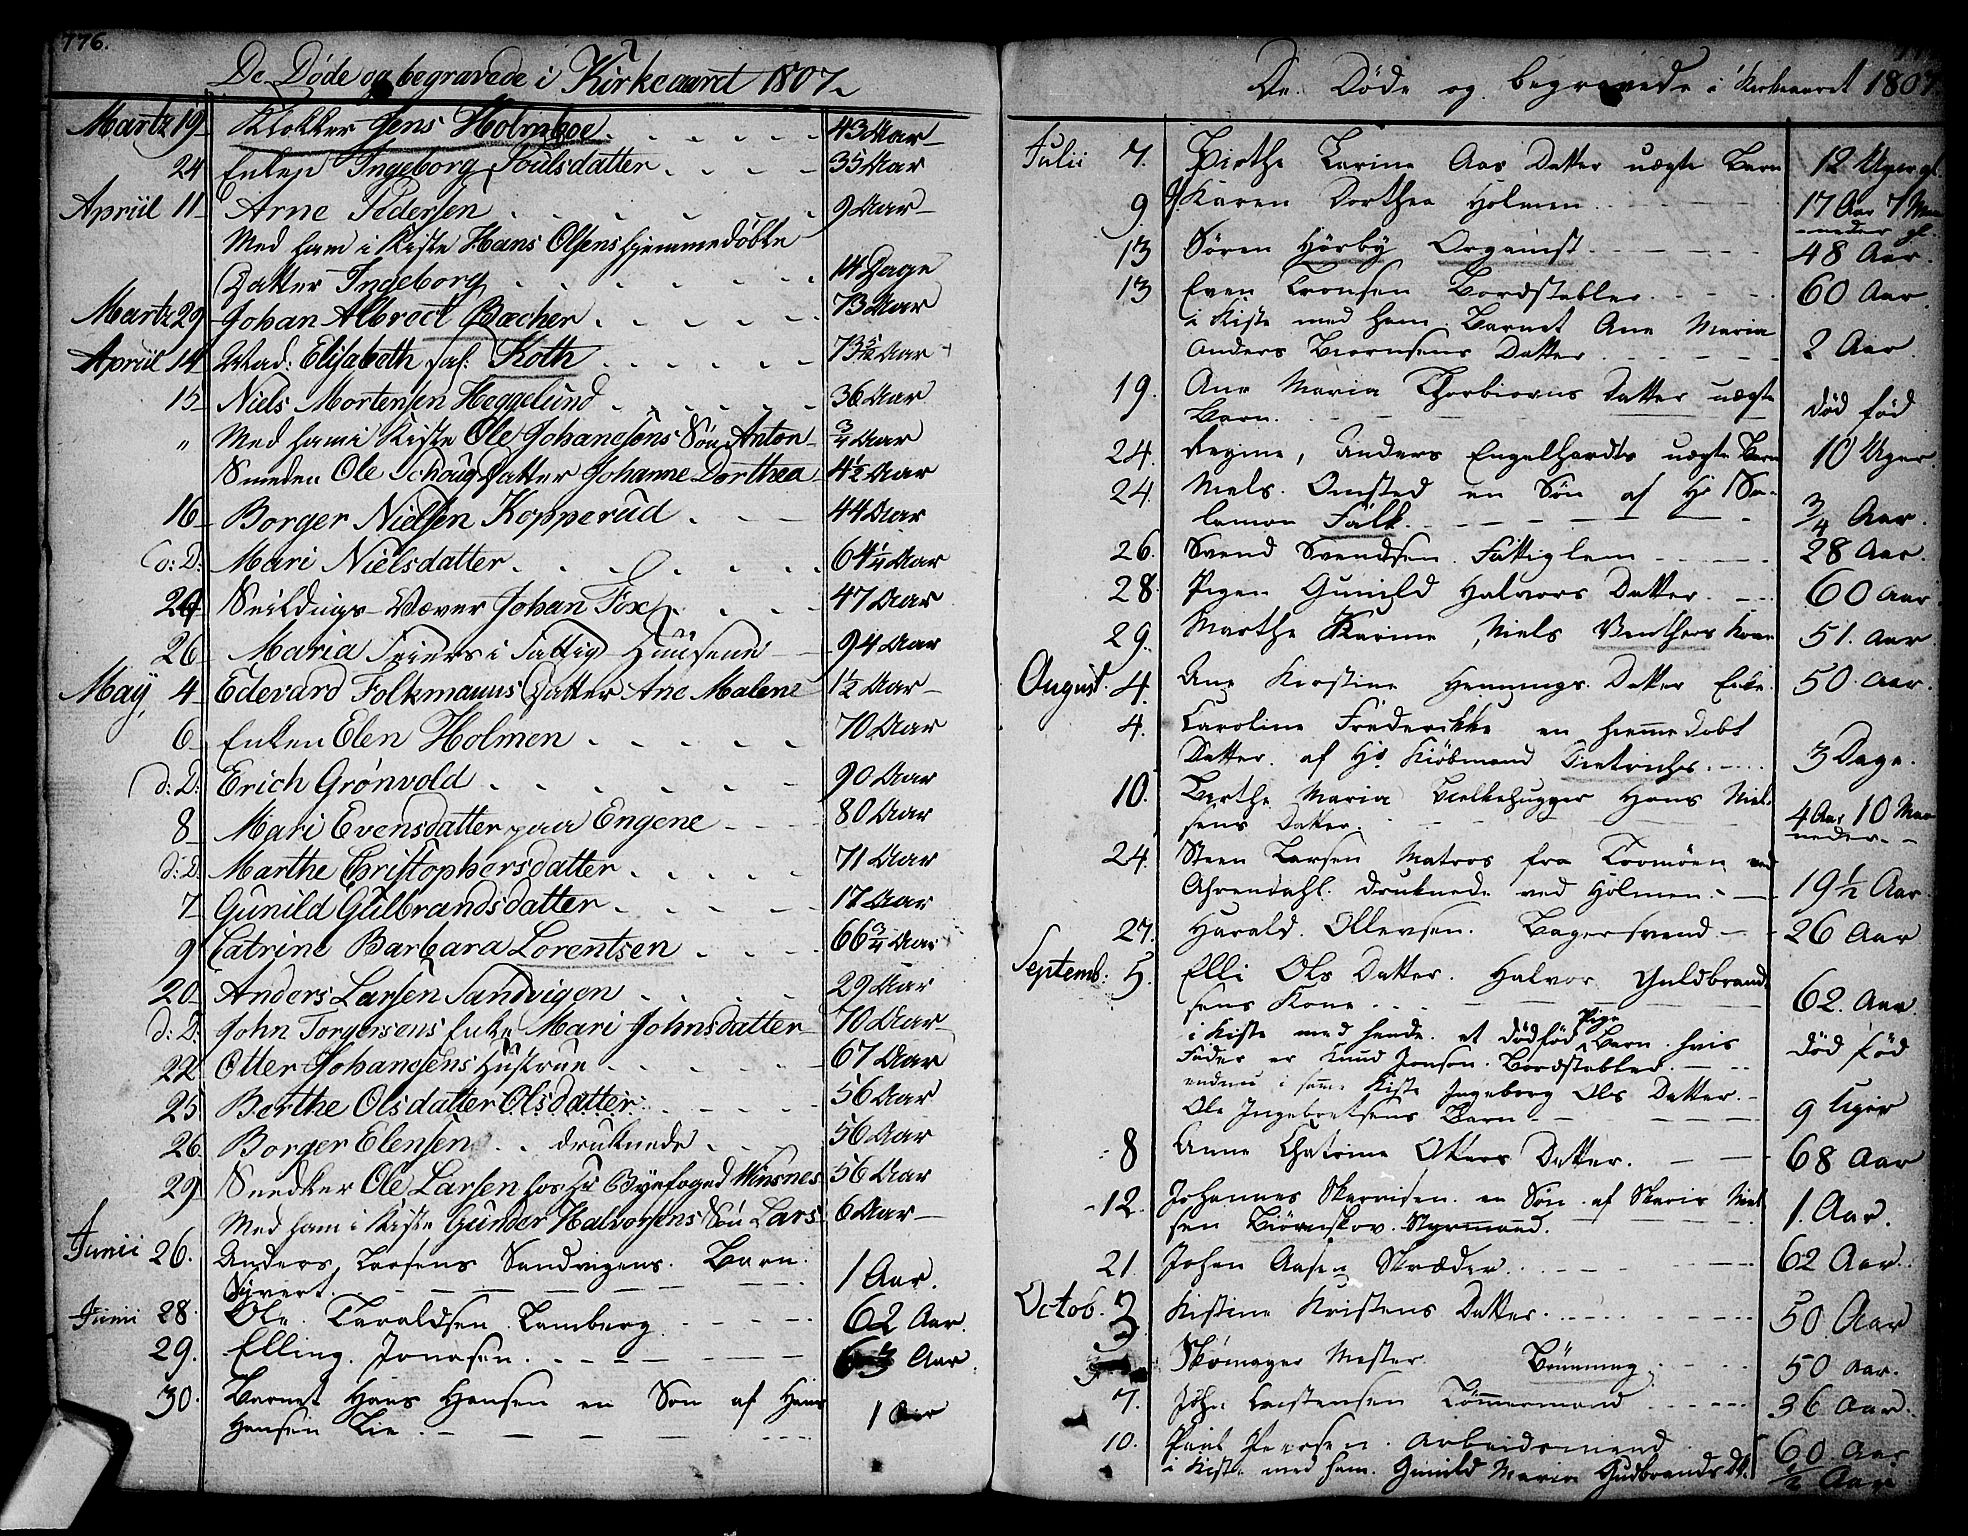 776.
De Døde og begravede i Kirkegaard 1807
Martz 19 Klokker Jens Holmboe 43 Aar
24 Enken Ingeborg Poulsdatter 35 Aar
Apriil 11 Arne Pedersen 9 Aar
Med ham i Kiste Hans Olsens hjemmedøbte
Datter Ingeborg 14 Dage
Martz 29 Johan Albrect Bæcher 73 Aar
Apriil 14 Mad: Elisabeth sal: Koth Aar
15 Niels Mortensen Heggelund 36 Aar
" Med ham i Kiste Ole Johanesens Søn Anton 3/4 Aar
Smeden Ole Schoug Datter Johanne Dorthea 4 1/2 Aar
16 Borger Nielsen Kopperud 44 Aar
d: D: Mari Nielsdatter 64 1/4 Aar
24 Seildugs Wæver Johan Fox 47 Aar
26 Maria Feiers i Fattig Huusene 94 Aar
May 4 Edevard Folkmanns Datter Ane Malene 1 1/2 Aar
6 Enken Elen Holmen 70 Aar
d: D: Erich Grønvold 90 Aar
8 Mari Evensdatter paa Engene 80 Aar
d: D: Marthe Christophersdatter 71 Aar
7 Gunild Gulbrandsdatter Aar
9 Catrine Barbara Lorentsen 66 3/4 Aar
20 Anders Larsen Sandvigen 29 Aar
d: D: John Torgersens Enke Mari Johnsdatter 70 Aar
22 Otter Johanesens Hustrue 67 Aar
25 Berthe Olsdatter Olsdatter 56 Aar
26 Borger Elensen druknede 56 Aar
29 Snedker Ole Larsen hos Hr Byefoged Winsnes 56 Aar
Med ham i Kiste Gunder Halvorsens Søn Lars 6 Aar
Junii 26. Anders Larsens Sandvigens Barn
Syvert. 1 Aar.
Junii 28. Ole Taraldsen Lamberg 62 Aar.
29. Elling Jonasen Aar.
30. Barnet Hans Hansen en Søn af Hans
Hansen Lie 1 Aar
De Døde og begravede i Kirkegaaret 1807
Julii 7. Birthe Larine Aas Datter uægte Barn 12 Uger gl.
9. Karen Dorthea Holmen 17 Aar 7 Maa
neder gl.
13 Søren Hörby Organist 48 Aar.
13 Even Tronsen Bordstabler 60 Aar
i Kiste med ham Barnet Ane Maria
Anders Biørnsens Datter 2 Aar.
19. Ane Maria Thorbiørns Datter uægte
Barn. død fød
24. Regine, Anders Engelhardts uægte Barn 10 Uger.
24. Niels Omsted en Søn af Hr Sa-
lamon Falk. 3/4 Aar.
26. Svend Svendsen. Fattiglem 28 Aar.
28. Pigen Gunild Halvors Datter. 60 Aar
29. Marthe Karine, Niels Benthers Kone 51. Aar
August 4. Ane Kirstine Hennings Datter Enke 50 Aar.
4. Caroline Frederikke en hiemmedøbt
Datter af Hr Kiøbmand Dietrichs. 3 Dage.
10. Berthe Maria Bielkehugger Hans Niel-
sens Datter. 4 Aar 10 Maa
neder.
24. Steen Larsen Matros fra Tromøen ved
Ahrendahl. druknede ved Holmen. 19 1/2 Aar
27. Harald Ollevsen. Bagersvend 26 Aar
Septemb. 5. Elli Ols Datter. Halvor Guldbrand-
sens Kone 62. Aar.
i Kiste med hende et dødfød Pige Barn hvis
Fader er Knud Jonsen. Bordstabler. død fød
endnu i samme Kiste Ingeborg Ols Datter.
Ole Ingebretsens Barn 9 Uger
8 Anne Chatrine Olsers Datter. 68 Aar
12. Johannes Skarrisen en Søn af Skaris Niel
sen Biørnskov. Styrmand. 1. Aar.
21. Johan Aasen Skræder. 62 Aar.
Octob. 3 Kistine Kristens Datter. 50 Aar
3 Skomager Mester Bönning. 50 Aar.
7. John Carstensen Tömmermand 36 Aar.
10. Paul Pedersen. Arbeidsmand 60 Aar
i Kiste med ham Gunild Maria Gudbrands Dt. 1/2 Aar